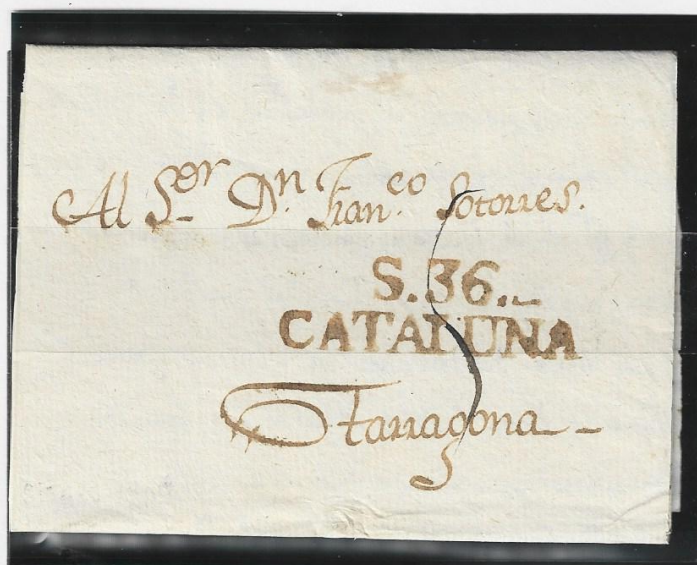 Al Sor Dn. Franco. Sotorres.
S.36.
CATALUÑA
Tarragona